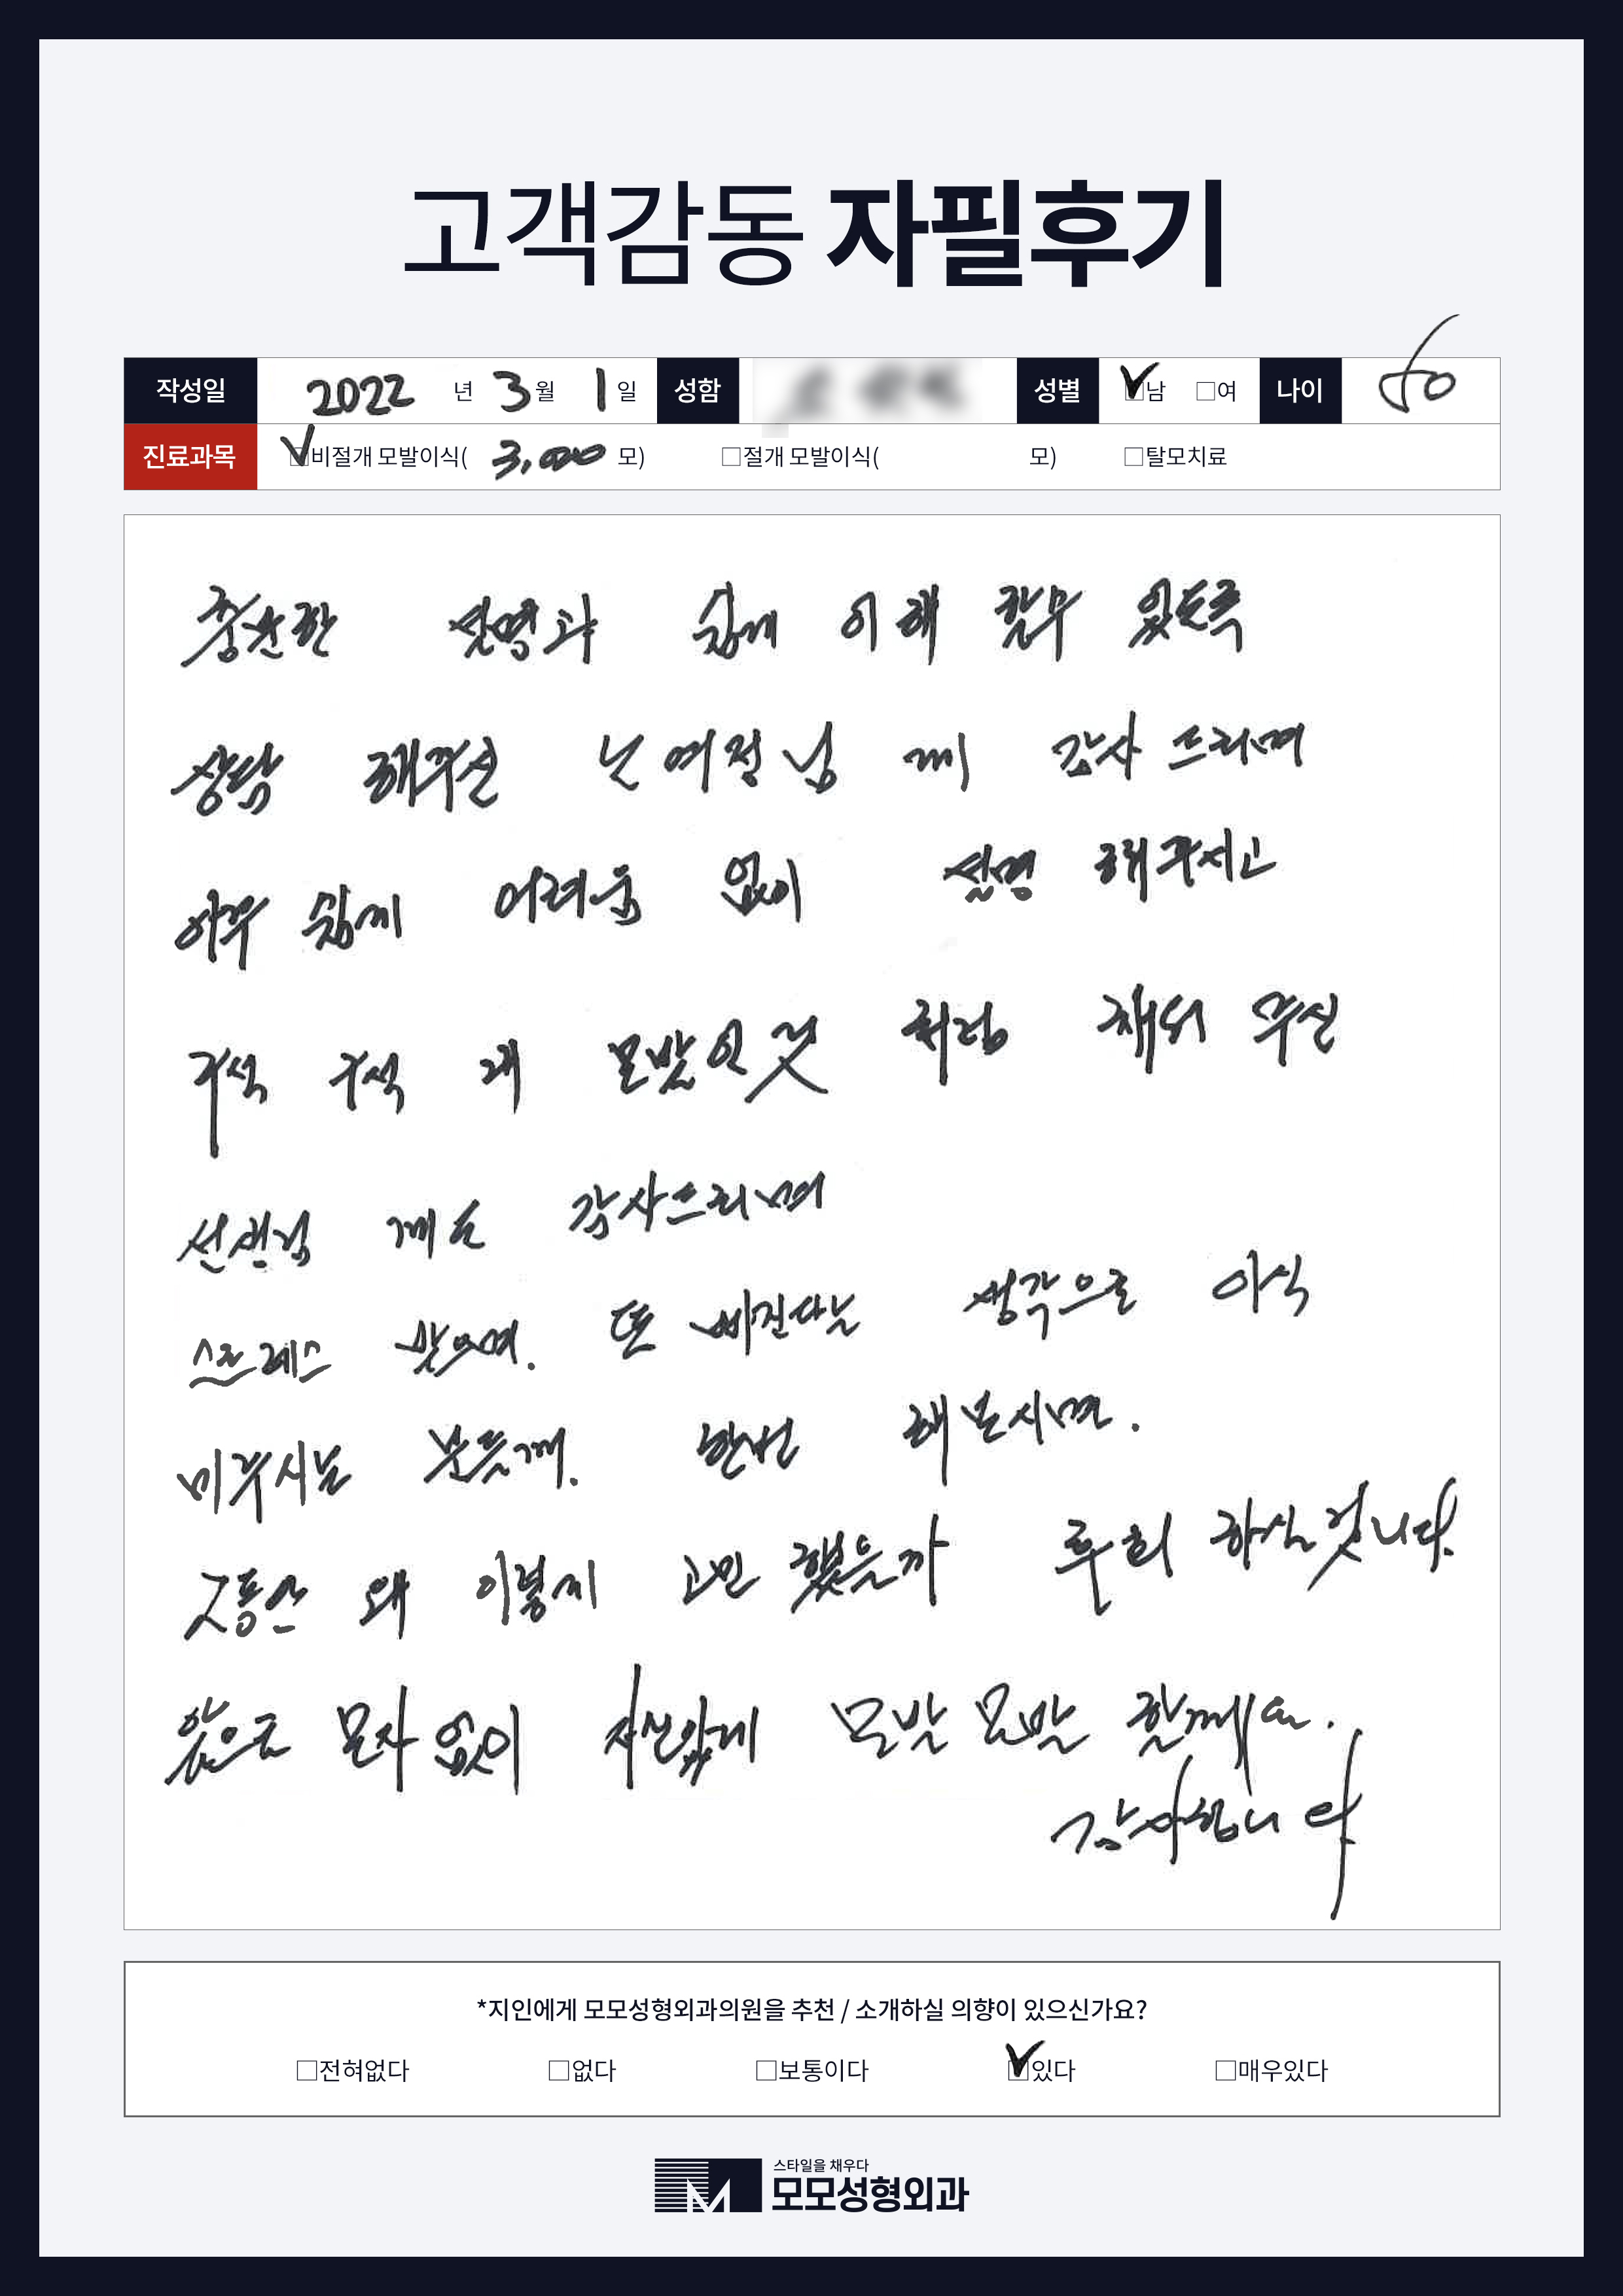 고객감동 자필후기
작성일 2022 년 3 월 1 일 성함 성별 ☑남 □여 나이 50
진료과목 ☑비절개 모발이식( 3,000 모) □절개 모발이식( 모) □탈모치료
충분한 설명과 쉽게 이해 할수 있도록
상담 해주신 님께 감사 드리며
아주 쉽게 어려움 없이 설명 해주시고
구석 구석 내 모발인것 처럼 채워 주신
선생님 께도 감사드리며
스트레스 받으며. 또 빠진다는 생각으로 이식
미루시는 분들께. 한번 해보시며.
그동안 왜 이렇게 고민 했을까 후회 하실것니다.
앞으로 모자 없이 자신있게 모발 모발 할께요.
감사합니다
*지인에게 모모성형외과의원을 추천 / 소개하실 의향이 있으신가요?
□전혀없다 □없다 □보통이다 ☑있다 □매우있다
스타일을 채우다
모모성형외과